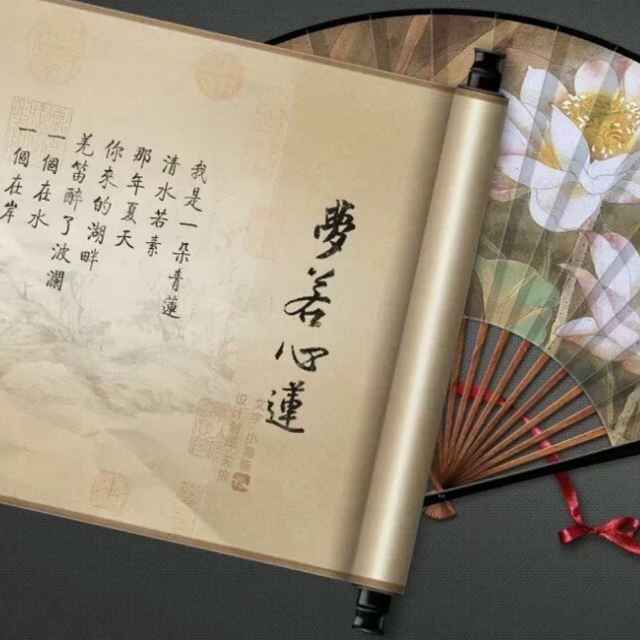 夢若心蓮
我是一朵青蓮
清水若素
那年夏天
你來的湖畔
羌笛醉了波瀾
一個在水
一個在岸